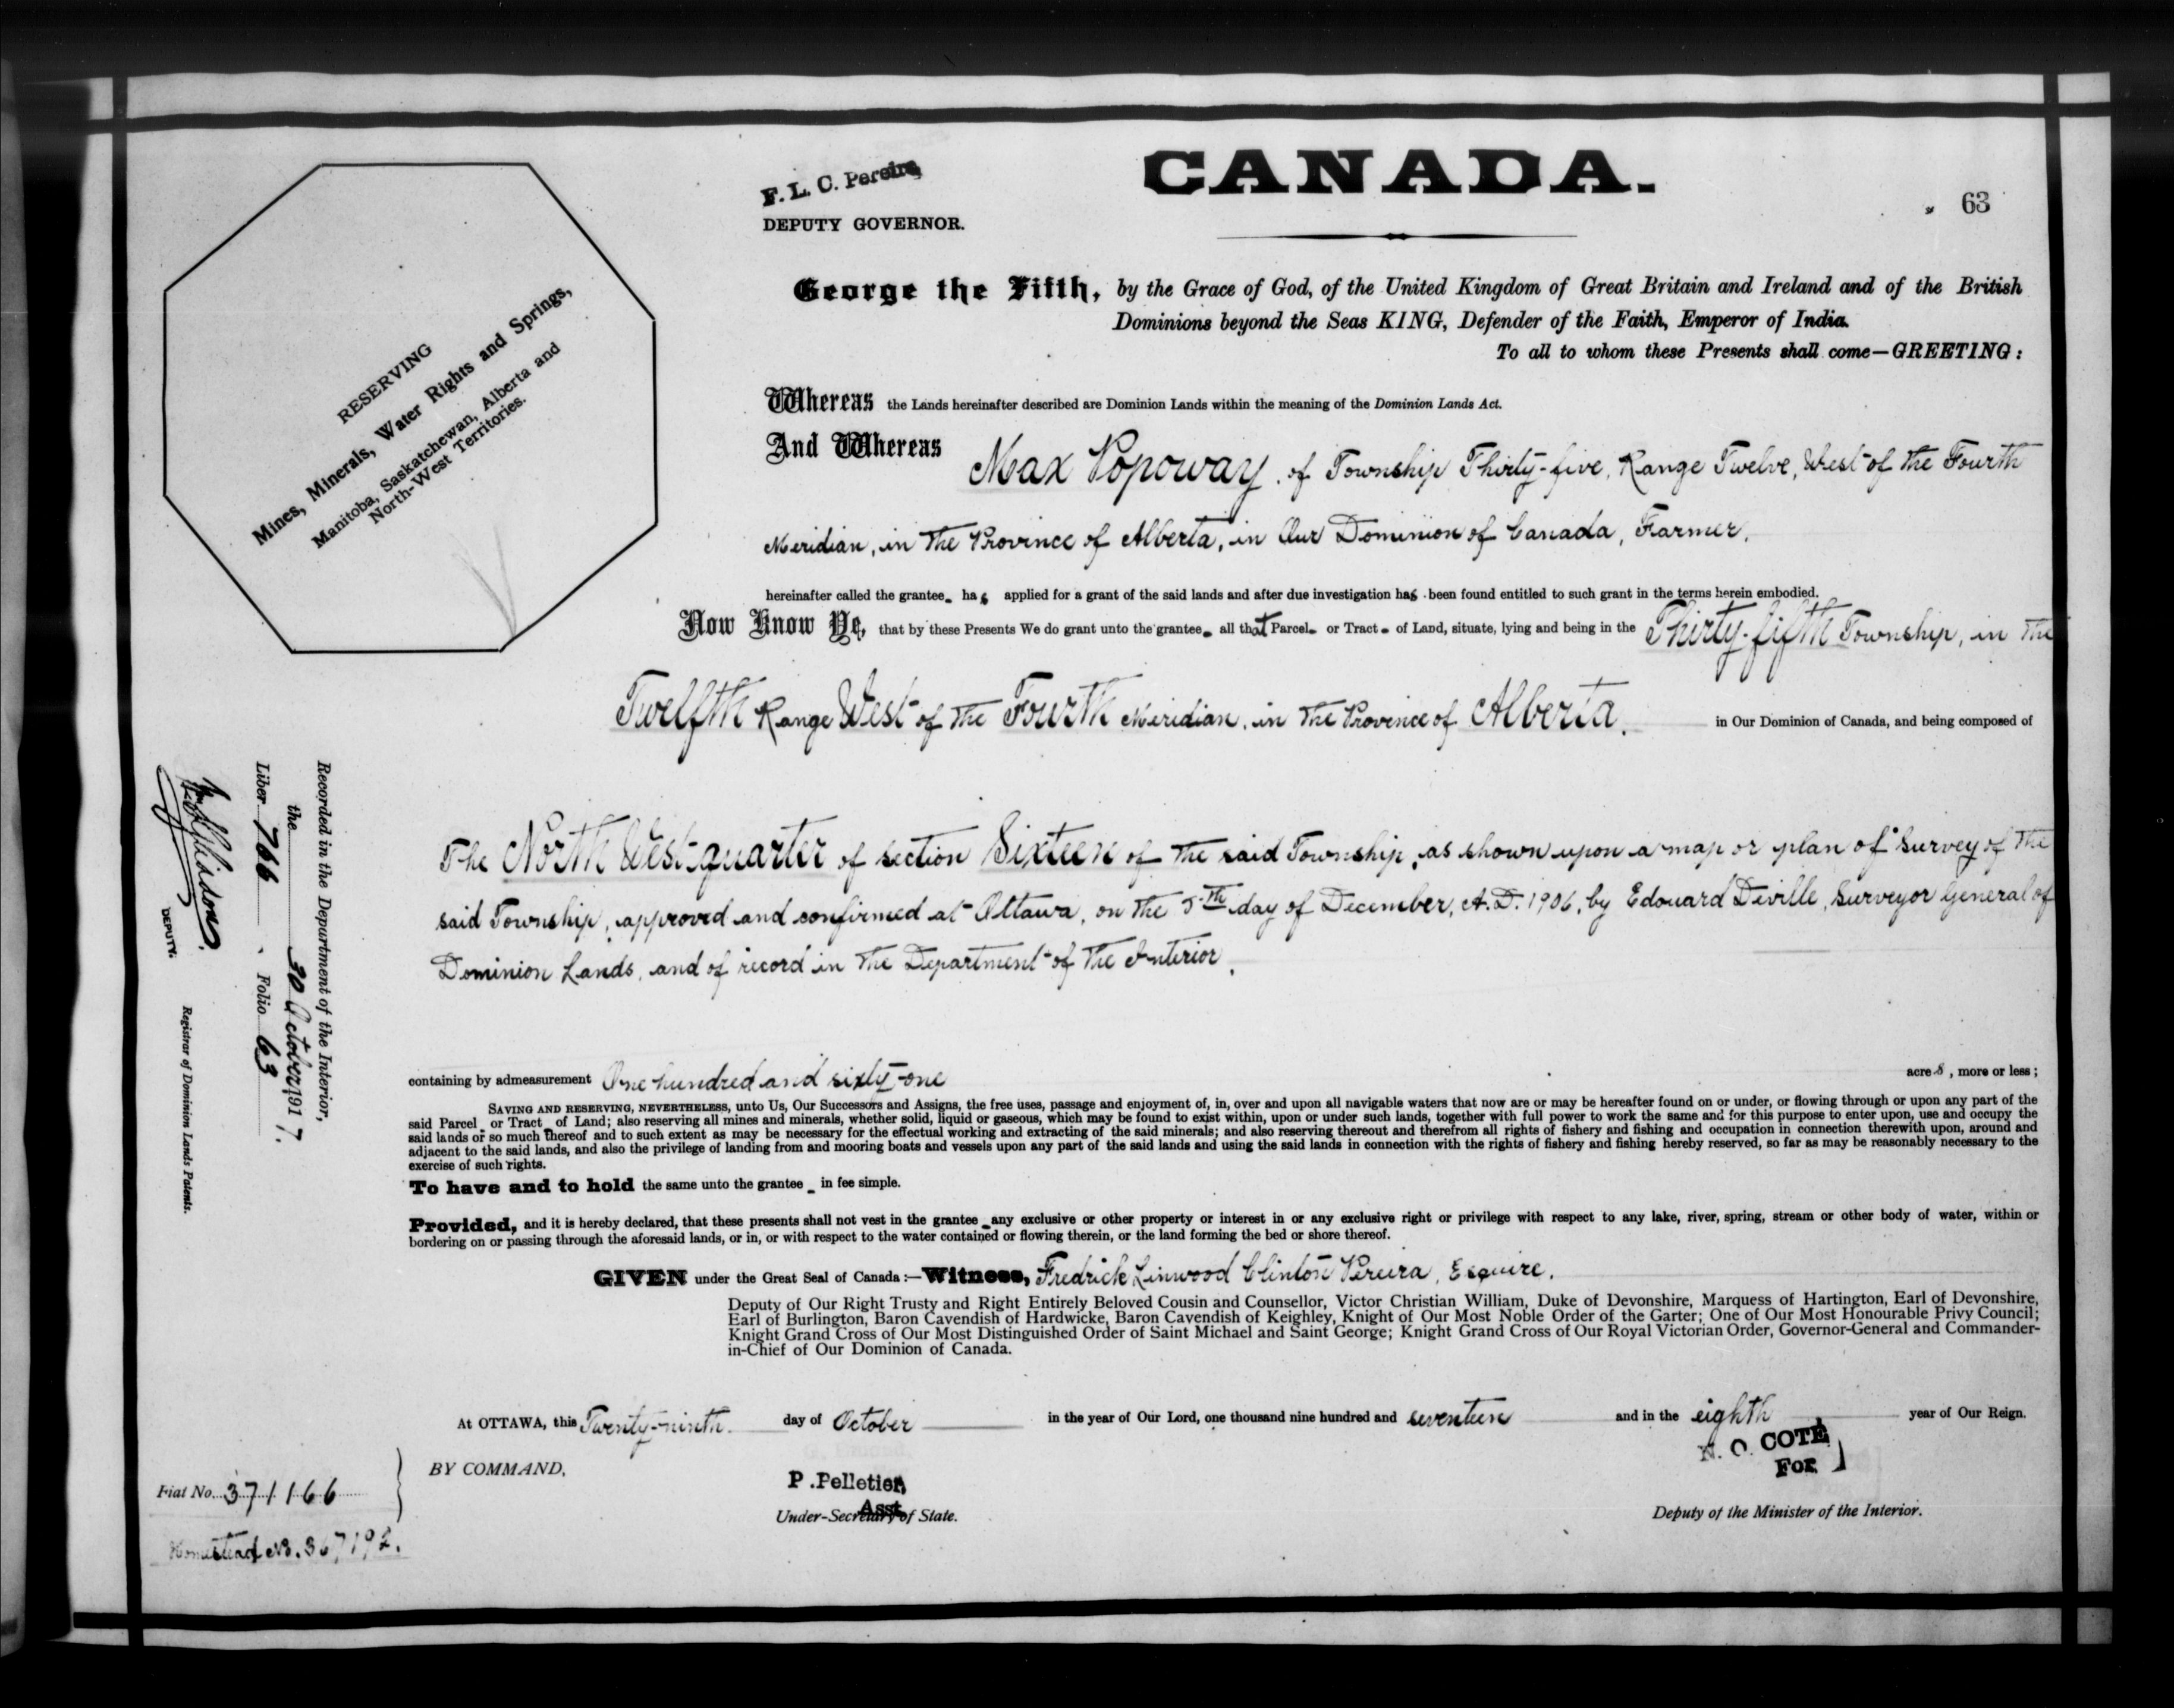 CANADA.
63
F. L. C. Pereira
DEPUTY GOVERNOR.
George the Fifth, by the Grace of God, of the United Kingdom of Great Britain and Ireland and of the British
Dominions beyond the Seas KING, Defender of the Faith, Emperor of India.
To all to whom these Presents shall come—GREETING:
RESERVING
Mines, Minerals, Water Rights and Springs,
Manitoba, Saskatchewan, Alberta and
North-West Territories.
Whereas the Lands hereinafter described are Dominion Lands within the meaning of the Dominion Lands Act.
And Whereas Max Popoway, of Township Thirty-five, Range Twelve, West of the Fourth
Meridian, in the Province of Alberta, in Our Dominion of Canada, Farmer,
hereinafter called the grantee has applied for a grant of the said lands and after due investigation has been found entitled to such grant in the terms herein embodied.
Now Know Ye, that by these Presents We do grant unto the grantee all that Parcel or Tract of Land, situate, lying and being in the Thirty-fifth Township, in the
Twelfth Range West of the Fourth Meridian, in the Province of Alberta, in Our Dominion of Canada, and being composed of
The North West quarter of section Sixteen of the said Township, as shown upon a map or plan of Survey of the
said Township, approved and confirmed at Ottawa, on the 5th day of December, A.D. 1906, by Edouard Deville, Surveyor General of
Dominion Lands, and of record in the Department of the Interior,
containing by admeasurement One hundred and sixty-one acres, more or less;
SAVING AND RESERVING, NEVERTHELESS, unto Us, Our Successors and Assigns, the free uses, passage and enjoyment of, in, over and upon all navigable waters that now are or may be hereafter found on or under, or flowing through or upon any part of the
said Parcel or Tract of Land; also reserving all mines and minerals, whether solid, liquid or gaseous, which may be found to exist within, upon or under such lands, together with full power to work the same and for this purpose to enter upon, use and occupy the
said lands or so much thereof and to such extent as may be necessary for the effectual working and extracting of the said minerals; and also reserving thereout and therefrom all rights of fishery and fishing and occupation in connection therewith upon, around and
adjacent to the said lands, and also the privilege of landing from and mooring boats and vessels upon any part of the said lands and using the said lands in connection with the rights of fishery and fishing hereby reserved, so far as may be reasonably necessary to the
exercise of such rights.
To have and to hold the same unto the grantee in fee simple.
Provided, and it is hereby declared, that these presents shall not vest in the grantee any exclusive or other property or interest in or any exclusive right or privilege with respect to any lake, river, spring, stream or other body of water, within or
bordering on or passing through the aforesaid lands, or in, or with respect to the water contained or flowing therein, or the land forming the bed or shore thereof.
GIVEN under the Great Seal of Canada:—Witness, Fredrick Linwood Clinton Pereira, Esquire,
Deputy of Our Right Trusty and Right Entirely Beloved Cousin and Counsellor, Victor Christian William, Duke of Devonshire, Marquess of Hartington, Earl of Devonshire,
Earl of Burlington, Baron Cavendish of Hardwicke, Baron Cavendish of Keighley, Knight of Our Most Noble Order of the Garter; One of Our Most Honourable Privy Council;
Knight Grand Cross of Our Most Distinguished Order of Saint Michael and Saint George; Knight Grand Cross of Our Royal Victorian Order, Governor-General and Commander-
in-Chief of Our Dominion of Canada.
At OTTAWA, this Twenty-ninth day of October in the year of Our Lord, one thousand nine hundred and seventeen and in the eighth year of Our Reign.
BY COMMAND,
P. Pelletier,
Asst.
Under-Secretary of State.
N. O. COTE
For
Deputy of the Minister of the Interior.
Fiat No. 371166
Homestead No. 367192.
Recorded in the Department of the Interior,
the 30 October 1917.
Liber 766 Folio 63
DEPUTY.
Registrar of Dominion Lands Patents.